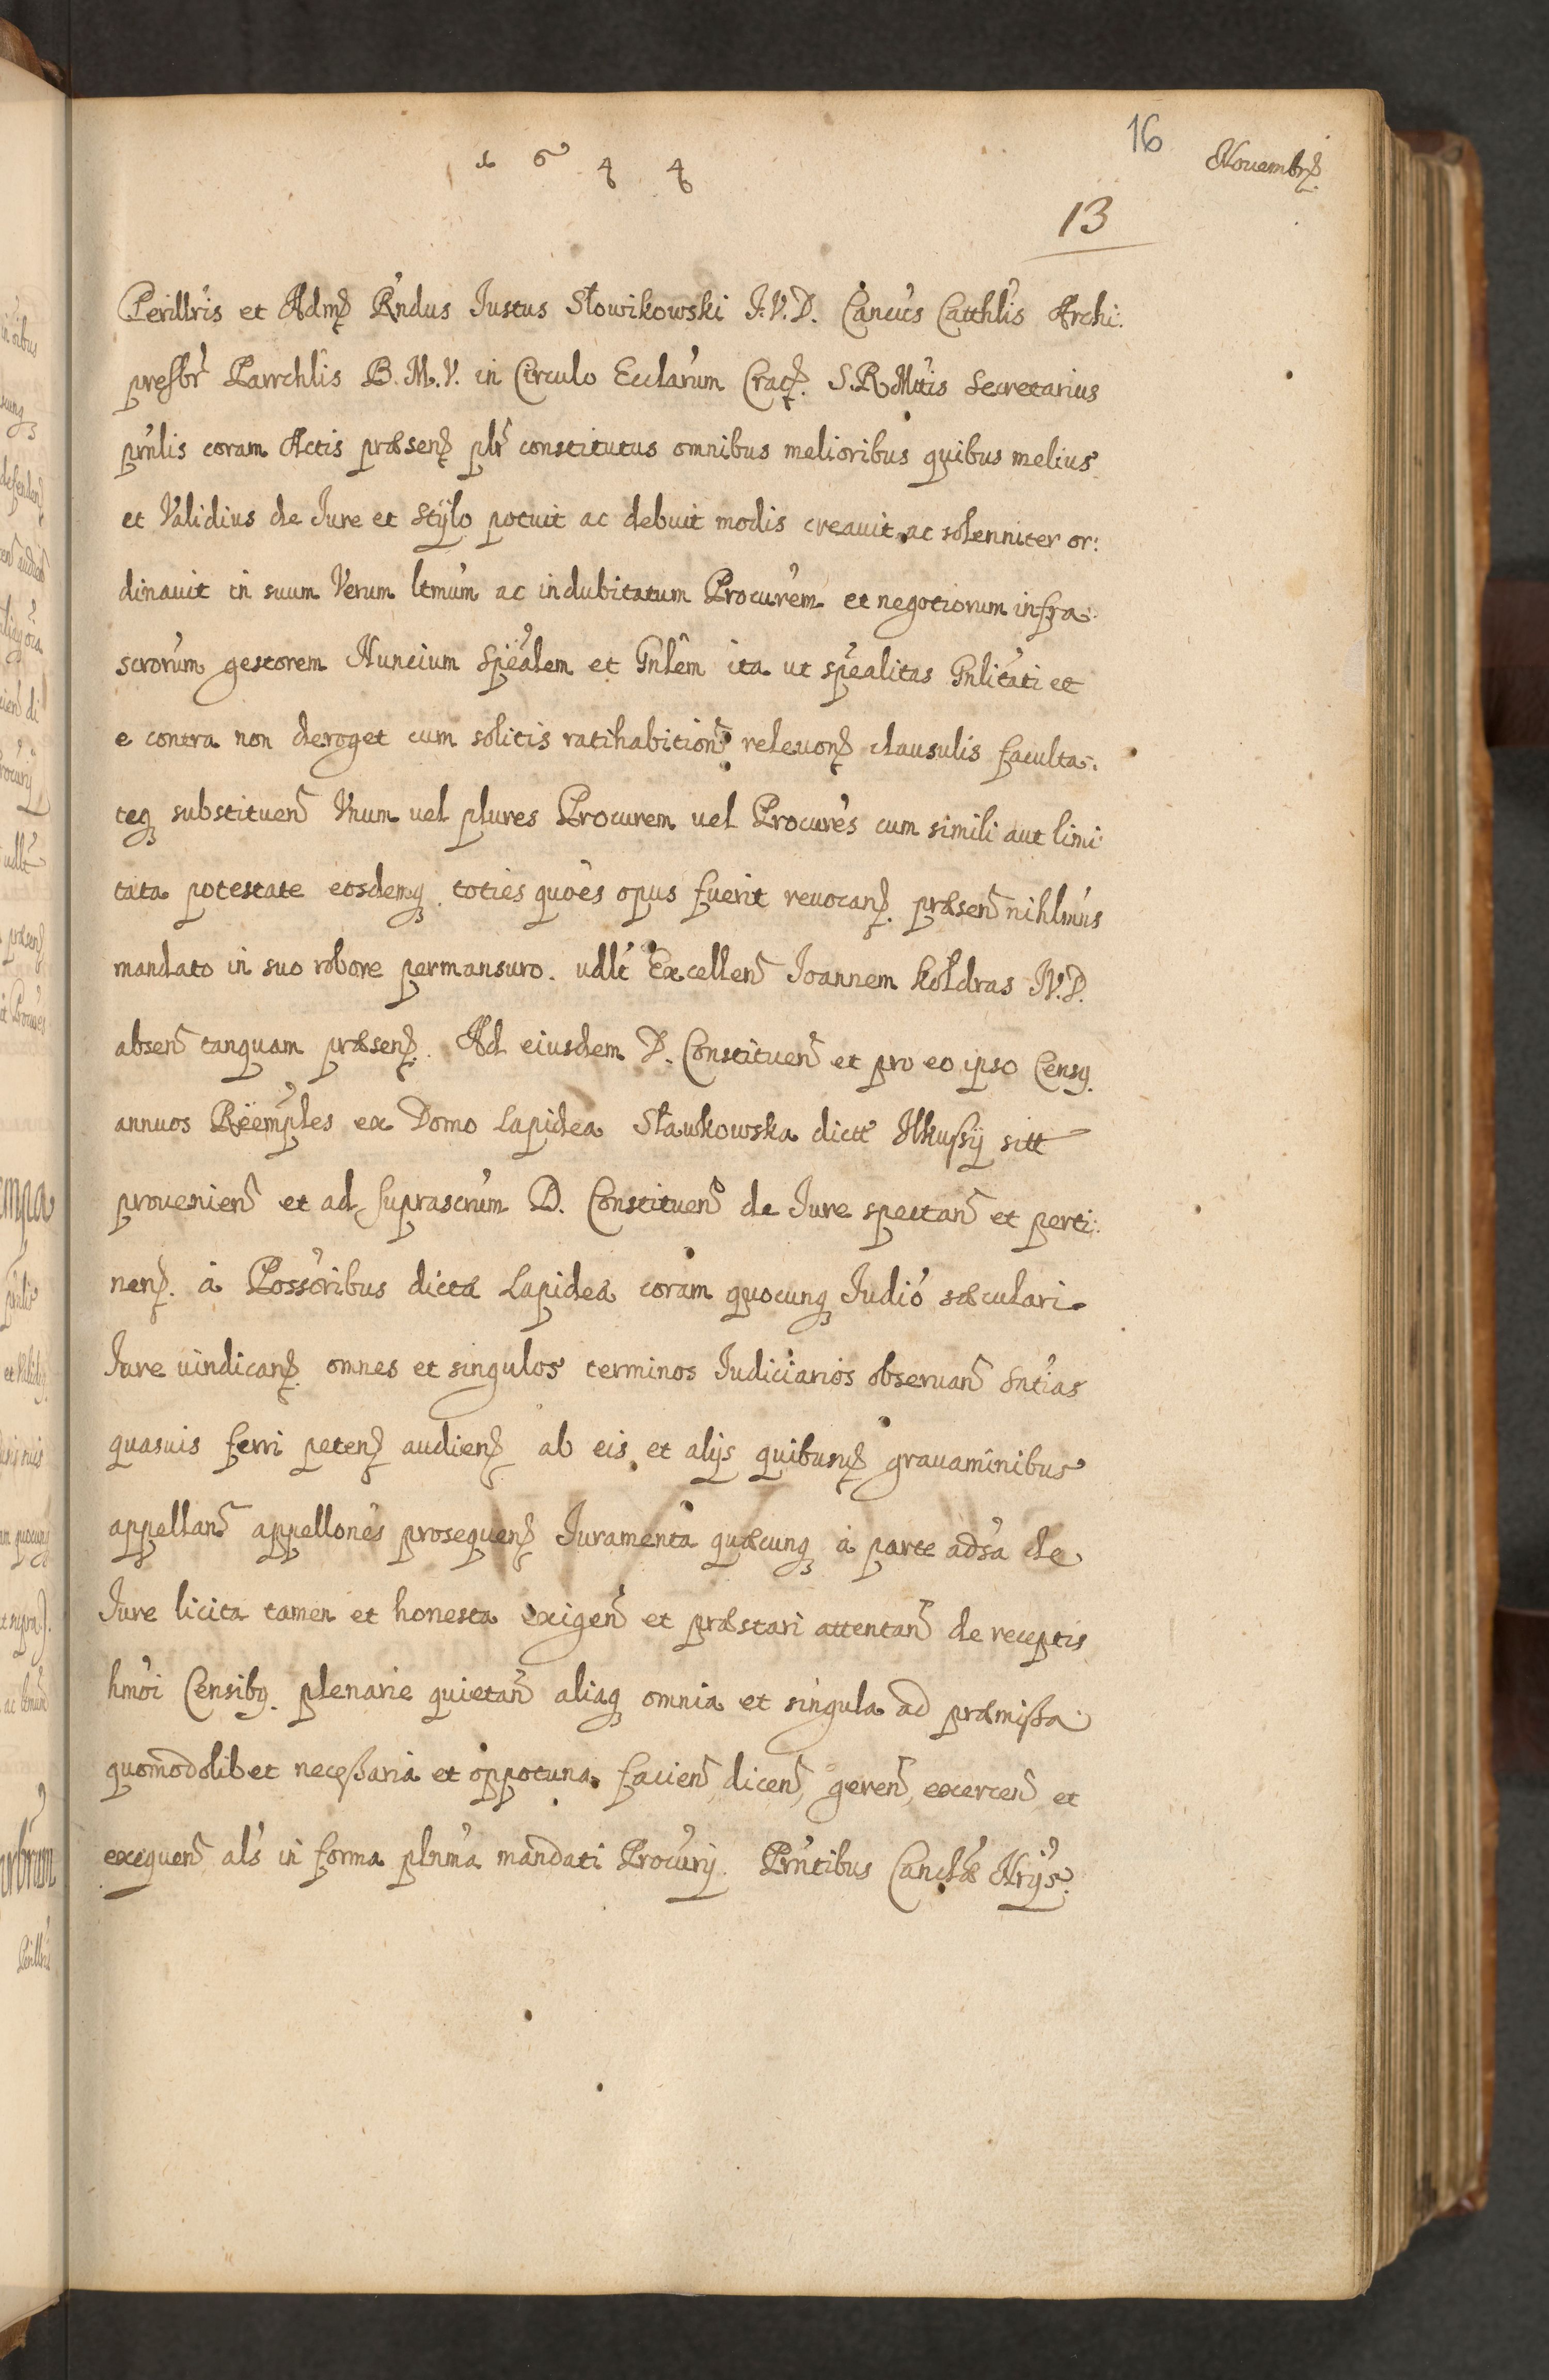 1644
16
Nouembr.
13
Perillris et Adm. Rndus Iustus Słowikowski I.V.D. Cancus Catthlis Archi:
presbr Parrchlis B.M.V. in Circulo Ecclarum Crac. S.R.Mttis Secretarius
prnlis coram Actis præsen. plr constitutus omnibus melioribus quibus melius
et Validius de Iure et Stÿlo potuit ac debuit modis creauit ac solenniter or:
dinauit in suum Verum ltmum ac indubitatum Procurem et negotiorum infra:
scrorum gestorem Nuncium Spealem et Gnlem ita ut spealitas Gnlitati et
e contra non deroget cum solitis ratihabition releuon. clausulis faculta:
teq substituen Vnum uel plures Procurem uel Procures cum simili aut limi:
tata potestate eosdemq toties quoes opus fuerit reuocan. præsen nihlmus
mandato in suo robore permansuro. udlt Excellen Ioannem Koldras IV.D.
absen tanquam præsen. Ad eiusdem D. Constituen et pro eo ipso Censq.
annuos Rëemples ex Domo Lapidea Sławkowska dictt Ilkussÿ sitt
prouenien et ad suprascrum D. Constituen de Iure spectan et perti:
nen. à Possoribus dictæ Lapideæ coram quocunq Iudio sæculari
Iure uindican. omnes et singulos terminos Iudiciarios obseruan Sntias
quasuis ferri peten audien ab eis et alijs quibusuis grauaminibus
appellan appellones prosequen Iuramenta quæcunq à parte adsa de
Iure licita tamen et honesta exigen et præstari attentan de receptis
hmoi Censibq. plenarie quietan aliaq omnia et singula ad præmissa
quomodolibet necessaria et oppotuna facien, dicen, geren, exercen et
exequen als in forma plnma mandati Procurij. Prntibus Canclæ Nrijs.